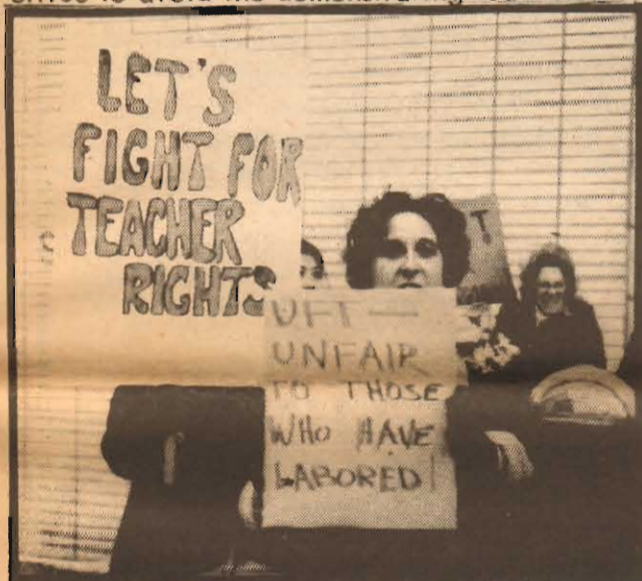 to avoid the
LET'S
FIGHT FOR
TEACHER
RIGHTS
UFT —
UNFAIR
TO THOSE
WHO HAVE
LABORED!
T